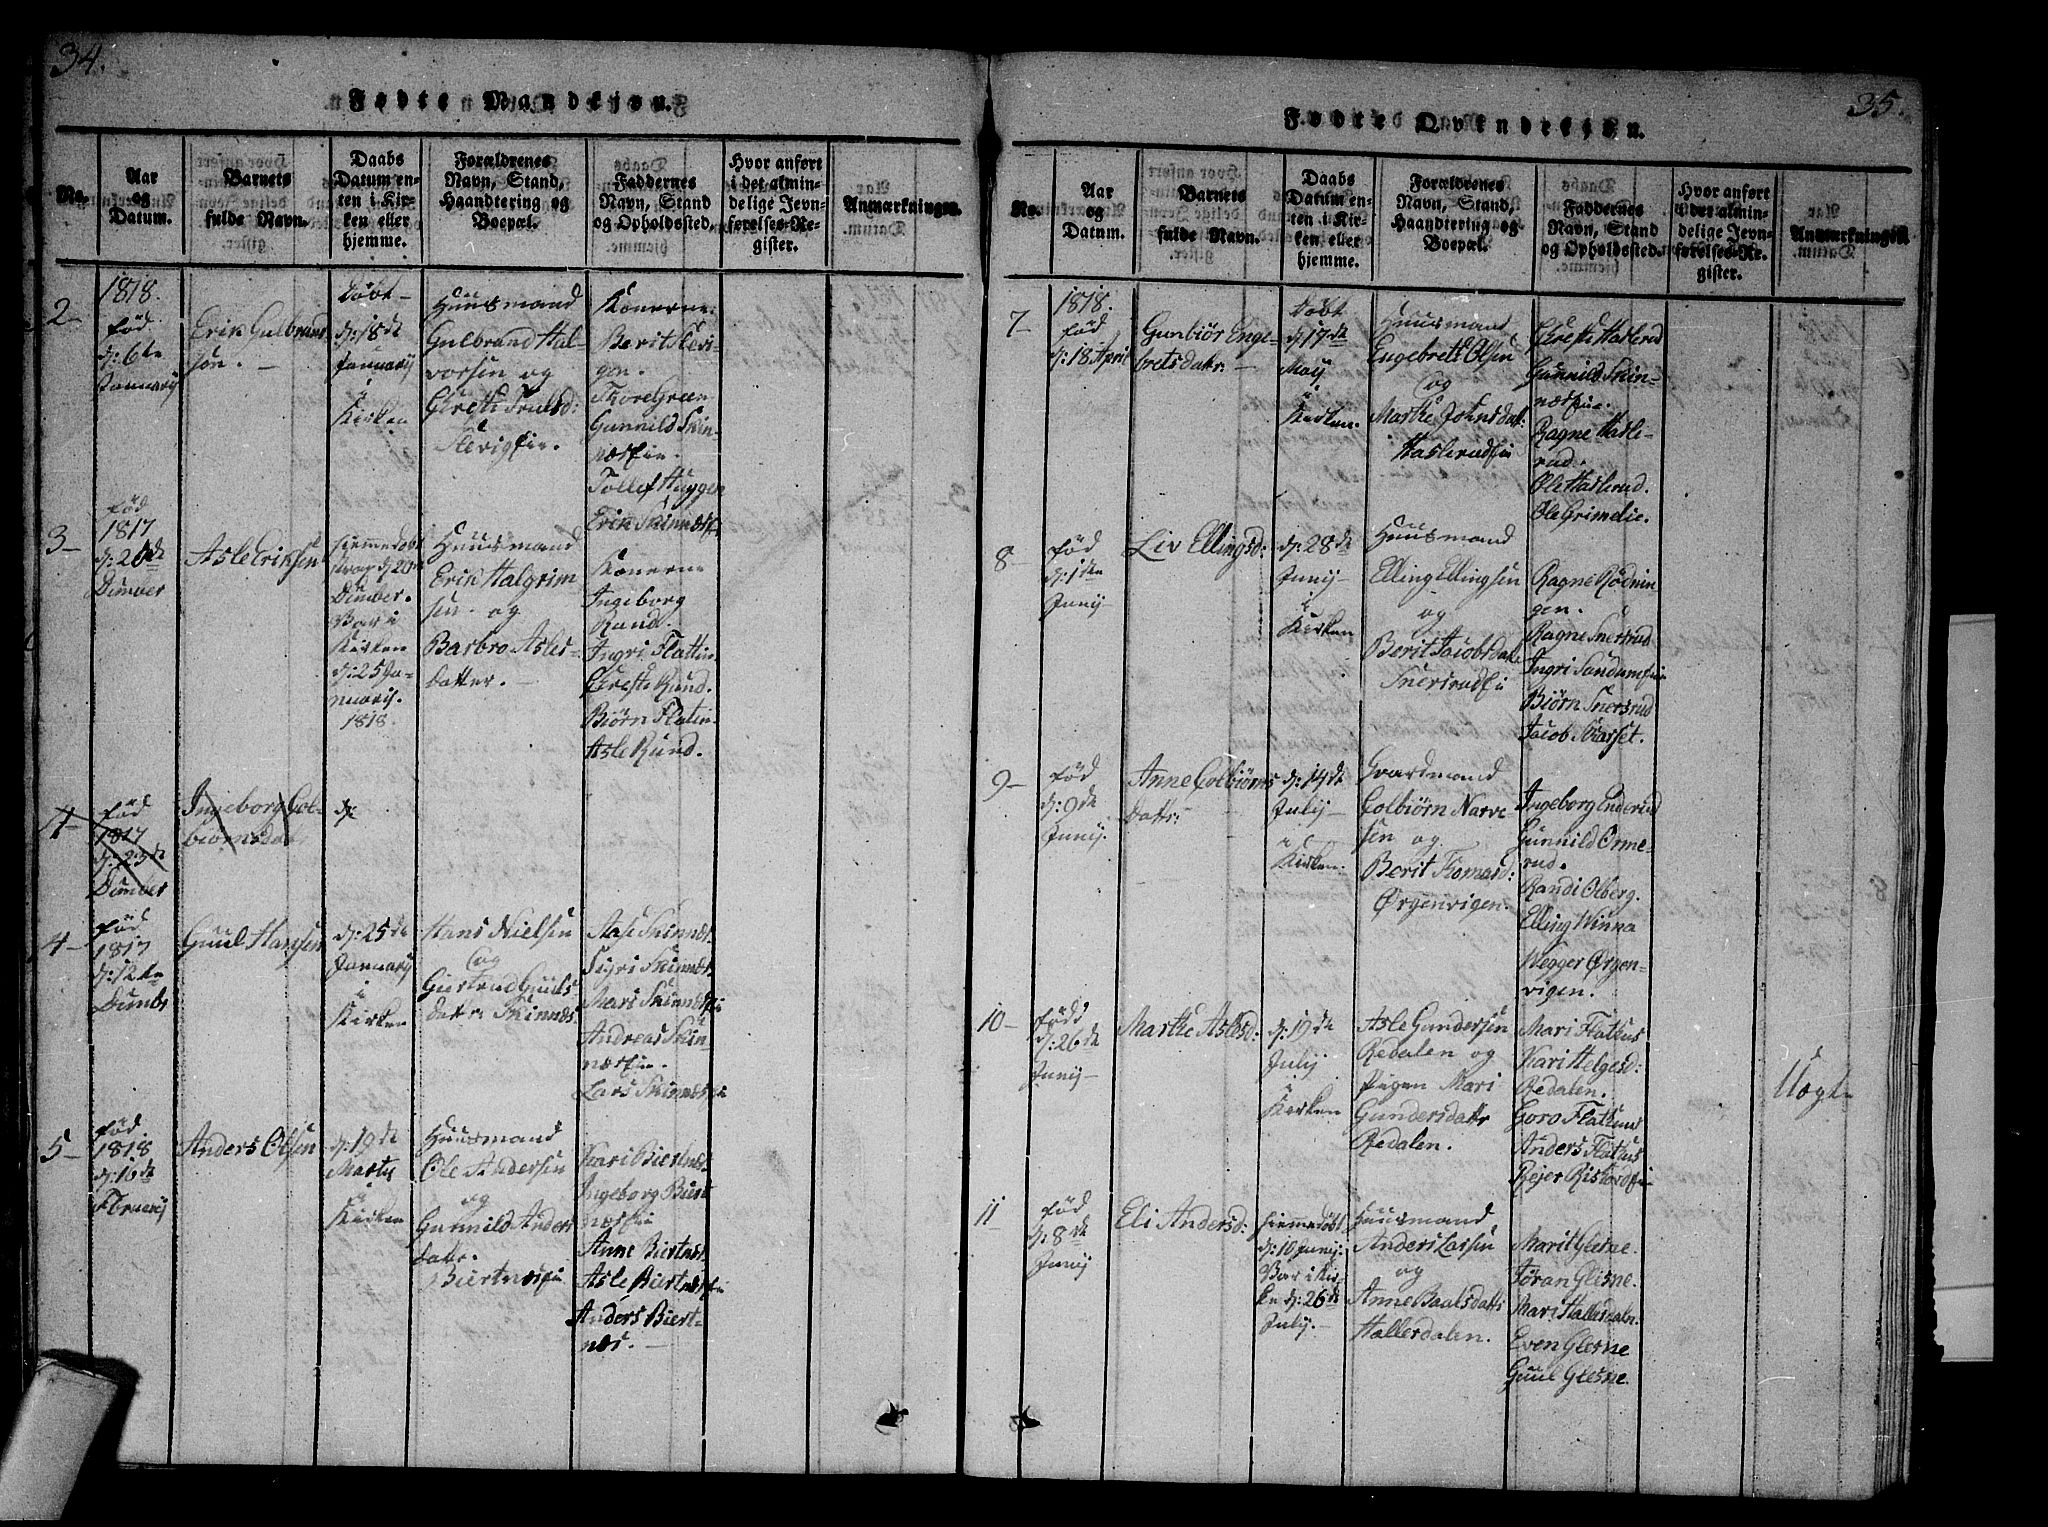 34.
Fødte Mandkiøn.
No.
Aar og Datum.
Barnets fulde Navn.
Daabs Datum enten i Kirken eller hjemme.
Forældrenes Navn, Stand, Haandtering og Boepæl.
Faddernes Navn, Stand og Opholdssted.
Hvor anført i det almindelige Jevnførelses-Register.
Anmærkninger.
2
1818.
fød
d: 6te
Januarij
Erik Gulbrands
søn.
Døbt
d: 18de
Januarij
i
Kirken
Huusmand
Gulbrand Hal-
vorsen og
Kirsti
Konerne
Berit
gen.
Thore
Gunnild Skin-
næsøie.
Tollef Huggen
Erik
3
fød
1817
d: 20de
Dcmber
Asle Eriksen
hiemmedøbt
d 20de
Dcmber.
Bar i
Kirken
d: 25 Ja-
nuarij.
1818.
Huusmand
Erik Halgrim
sen og
Barbro Asles-
datter.
Konerne
Ingeborg
Rund.
Ingri Flattin
Kirsti Rund.
Biørn Flatin
Asle Rund.
4
fød
1817
d: 23de
Dcmber
Ingeborg Col-
biørnsdat
d:
4
fød
1817
d: 12te
Guul Hansen
d: 25de
Januarij
i
Kirken
Hans Nielsen
og
Giertrud Guuls
datr: Skinnes
Aase Skinnes
Sigri Skinnes
Mari
Andreas Skin-
Lars
5
fød
1818
d: 16de
Anders Olsen
d: 19de
Martij
i
Kirken
Huusmand
Ole Andersen
og
Gunnild Anders
datr.
Kari Biertnæs
Ingeborg Biert
Anne Biertnæs
Asle
Anders Biert-
næs.
35.
Fødte Qvindekiøn.
No.
Aar og Datum.
Barnets fulde Navn.
Daabs Datum enten i Kirken eller hjemme.
Forældrenes Navn, Stand, Haandtering og Boepæl.
Faddernes Navn, Stand og Opholdssted.
Hvor anført i det almindelige Jevnførelses-Register.
Anmærkninger
7
1818.
fød
d: 18 April
Gunbiør Enge-
bretsdatr.
Døbt
d: 17de
Maij
i
Kirken.
Huusmand
Engebret Olsen
og
Marthe Johnsdatt:
Kirsti Haslerud
Gunnild Skin-
Ragne Hasle-
rud.
Ole Haslerud.
Ole Grimelie.
8
fød
d: 1ten
Junij
Liv Ellingsd:
d: 28de
Junij
i
Kirken
Huusmand
Elling Ellingsen
og
Berit Jacobsdatr
Ragne Rødnin
gen.
Ragne Snersrud
Ingri
Biørn Snersrud
Jacob Skarset.
9
fød
d: 9de
Junij.
Anne Colbiørns
Dattr:
d: 14de
Julij
i
Kirken.
Gaardmand
Colbiørn Narve
sen og
Berit Thomasd:
Ørgenvigen.
Ingeborg Enderud
Gunnild Orme-
rud.
Randi Olberg.
Elling Winna
Wegger Ørgen-
vigen.
10
fød
d: 26de
Junij
Marthe Aslesd:
d: 19de
Julij
i
Kirken
Asle Gundersen
Redalen og
Pigen Mari
Gundersdattr
Redalen.
Mari Flatus
Kari Helgesd:
Redalen.
Goro Flattus
Anders Flatus
Rejer
Uægte
11
fød
d: 8de
Junij
Eli Andersd:
hiemmedøbt
d: 10 Junij.
Bar i Kir-
ken d: 26de
Julij.
Huusmand
Anders Larsen
og
Anne Baalsdattr
Hallerdalen.
Marit Glesne.
Jøran Glesne.
Mari Hallerdaln.
Even Glesne
Guul Glesne.